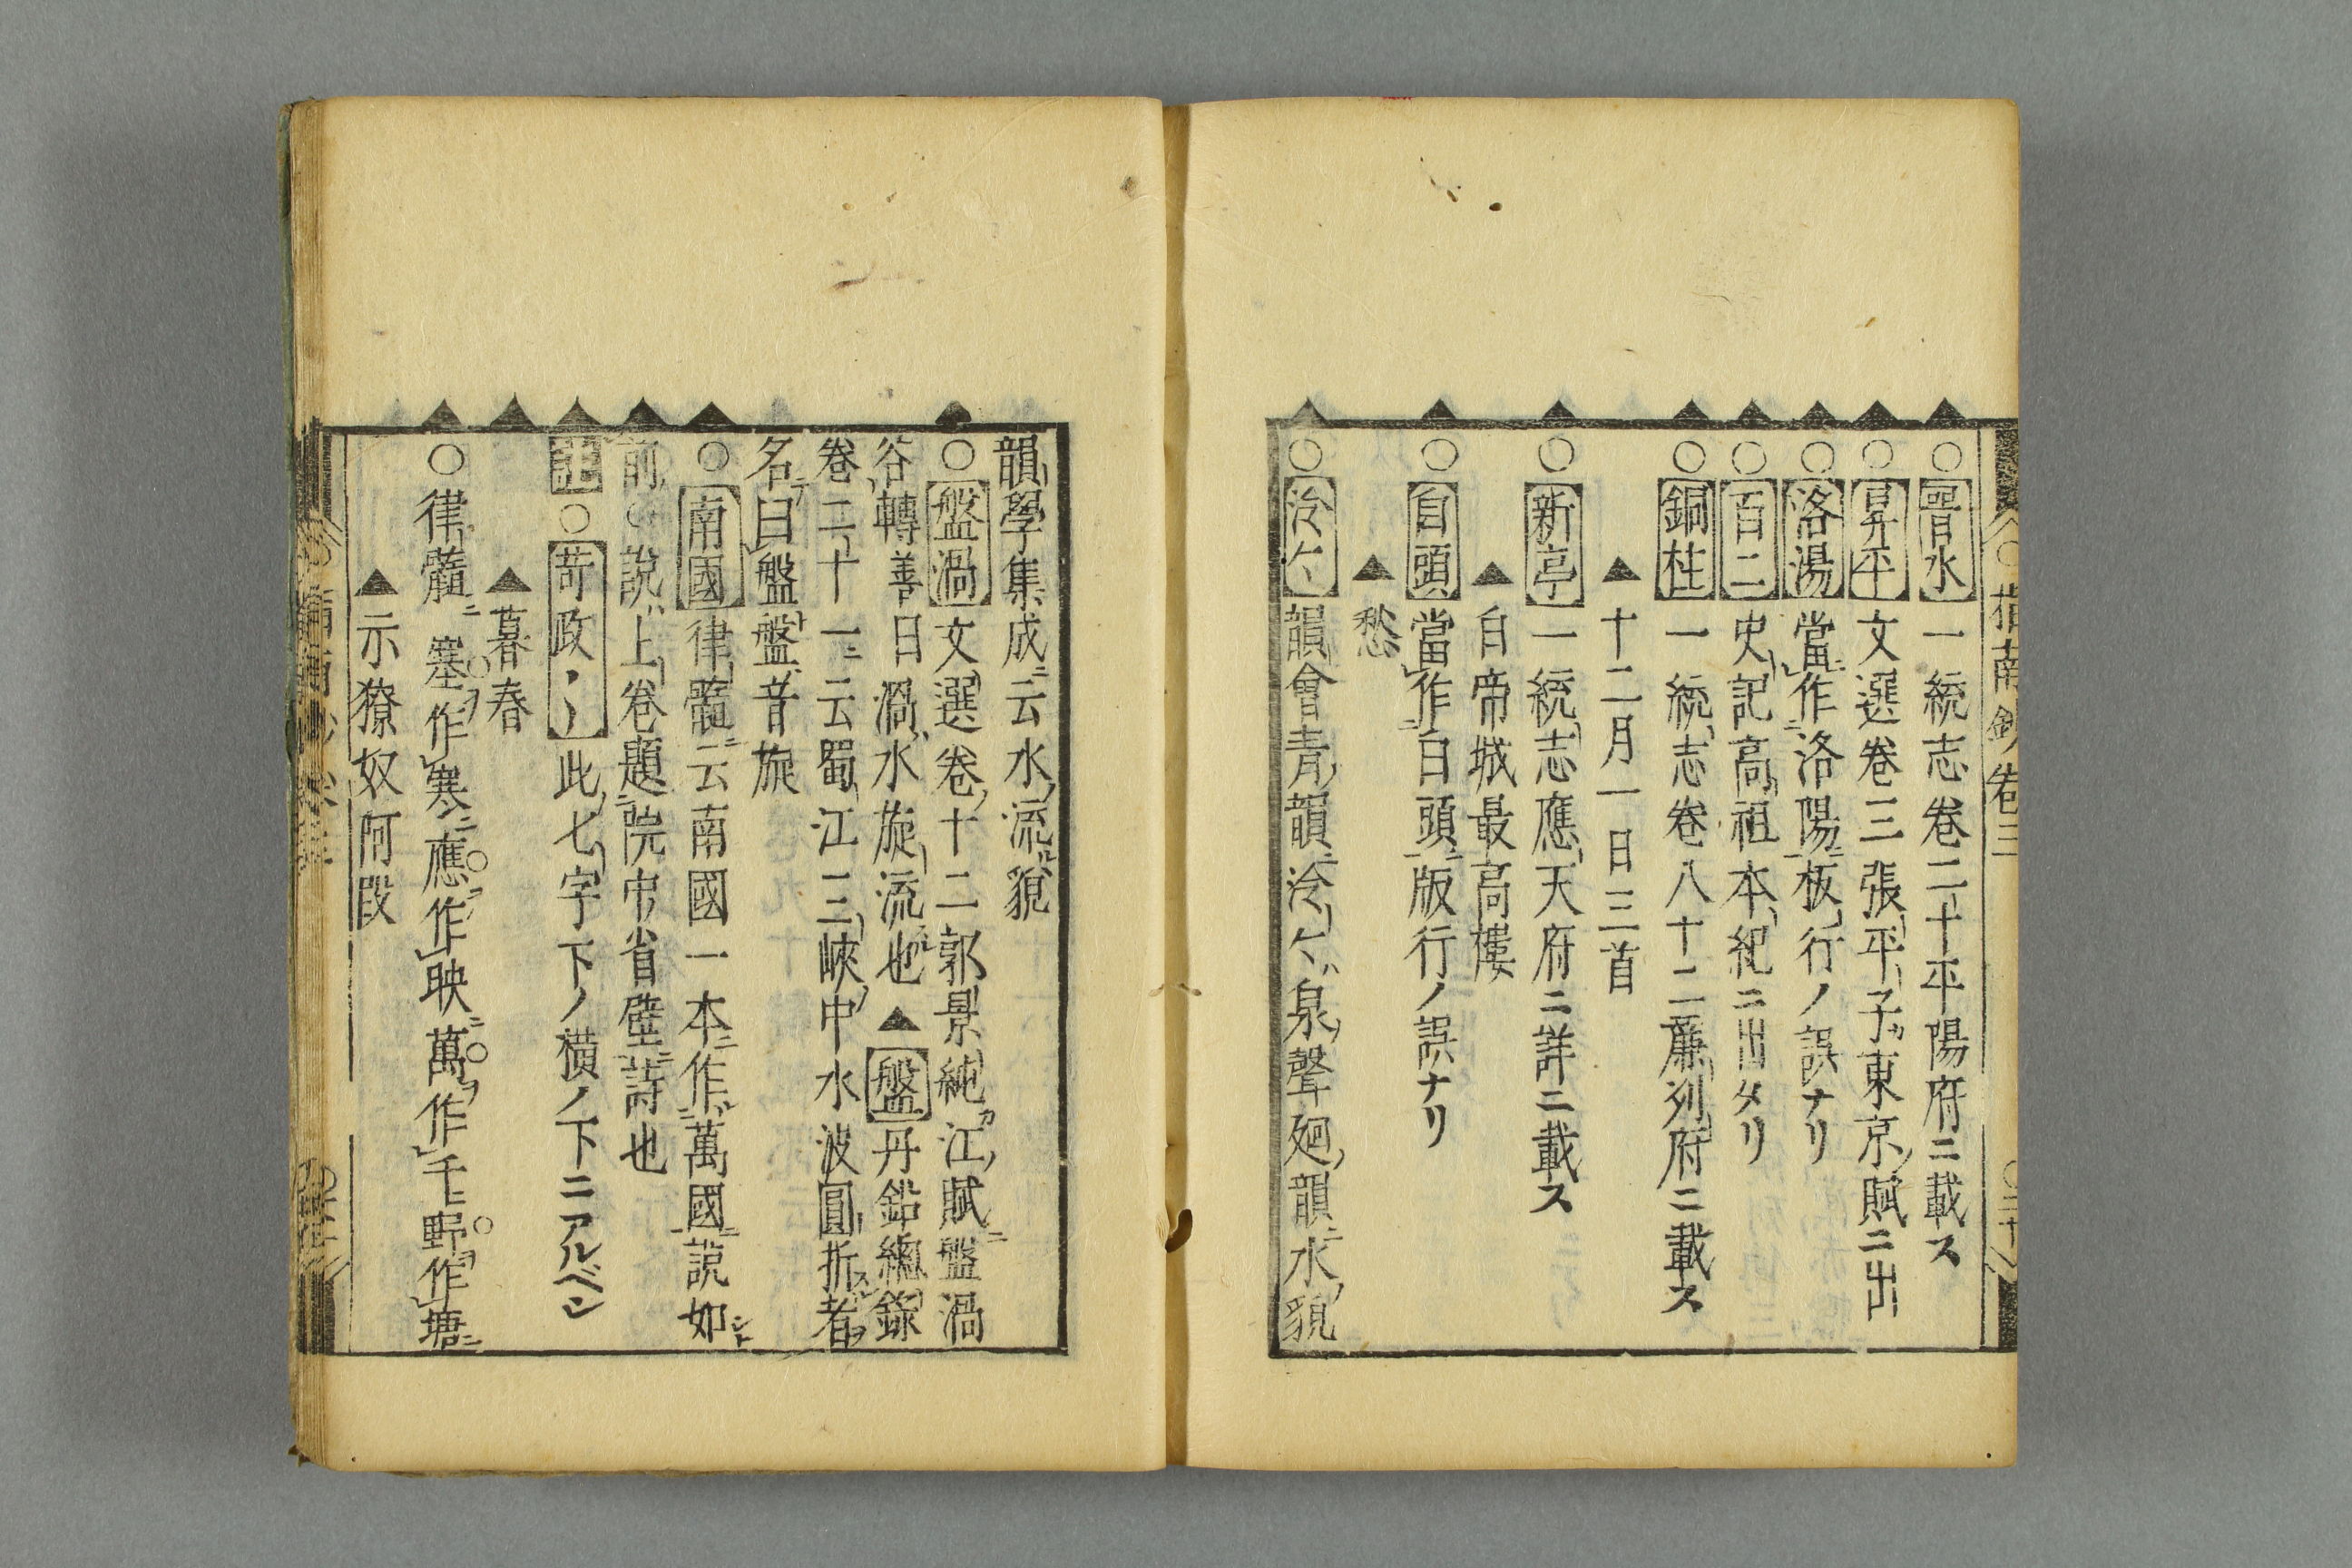 ○晋水一統志卷二十平陽府ニ載ス
○昇平文選卷三張平子カ東京賦ニ出
○洛湯當作洛陽板行ノ誤ナリ
○百二史記高祖本紀ニ出タリ
○銅柱一統志卷八十二廉列府ニ載ス
▲十二月一日三首
○新亭一統志應天府ニ詳ニ載ス
▲白帝城最高樓
○自頭當作白頭版行ノ誤ナリ
▲愁
○泠々韻會青韻泠々泉聲廻韻水貌
韻學集成云水流貌
○盤渦文選卷十二郭景純カ江賦盤渦
谷轉善曰渦水旋流也▲盤丹鉛總錄
卷二十一云蜀江三峽中水波圓折者
名曰盤盤音旋
○南國律髓云南國一本作萬國說如
前○說上卷題院中省壁詩也
註○苛政此七字下ノ横ノ下ニアルベシ
▲暮春
○律髓塞作寒應作映萬作千野作塘
▲示獠奴阿段
指南鈔卷三